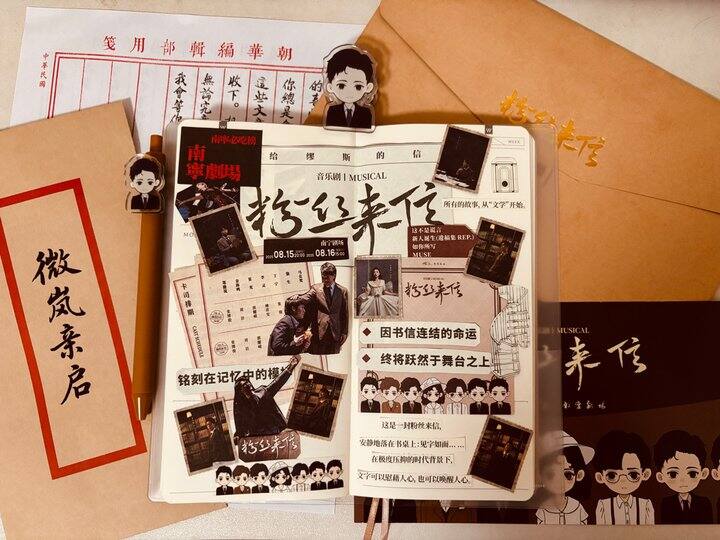 朝華編輯部用箋
中華民國
你總是
這些文
收下。
無論完
我會等
微岚亲启
粉丝来信
南寧必吃榜
南寧劇場
给缪斯的信
音乐剧 | MUSICAL
粉丝来信
南宁剧场
08.15
08.16
卡司排期
CAST SCHEDULE
铭刻在记忆中的模
粉丝来信
WEEK
所有的故事,从“文学”开始。
这不是谎言
新人诞生(遗稿集 REP.)
如你所写
MUSE
粉丝来信
因书信连结的命运
终将跃然于舞台之上
这是一封粉丝来信,
安静地落在书桌上:见字如面……
在极度压抑的时代背景下,
文字可以慰藉人心,也可以唤醒人心。
MUSICAL
来信